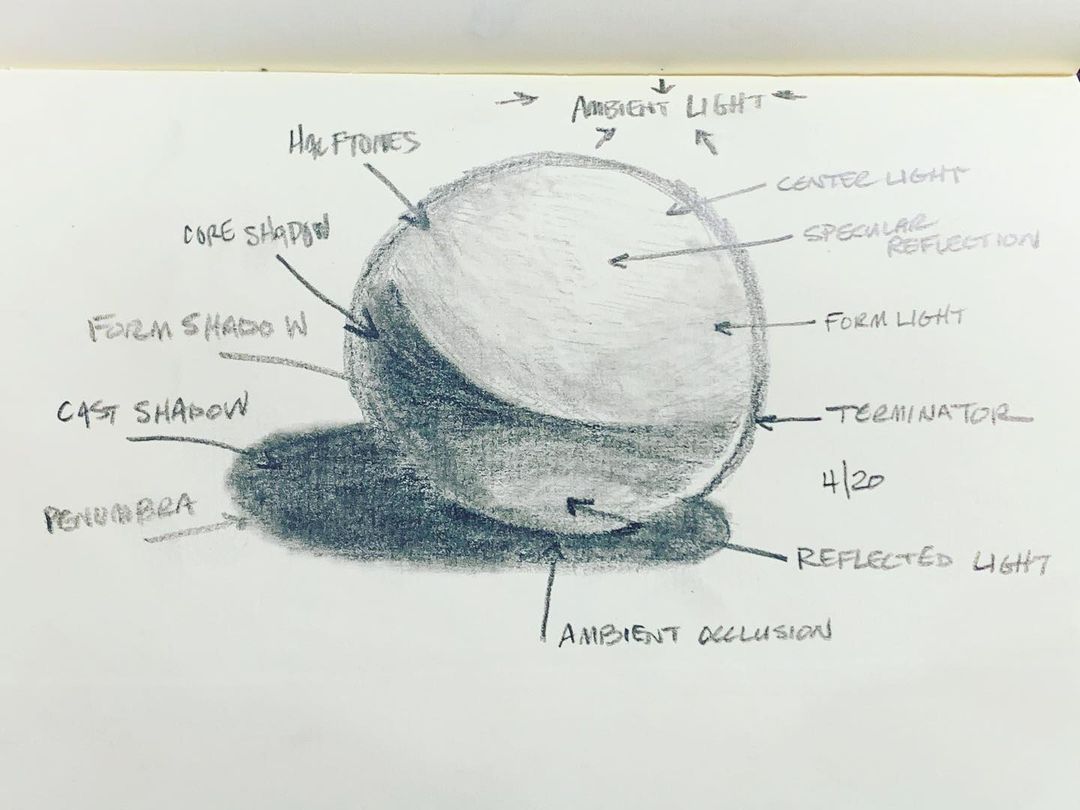 AMBIENT LIGHT
HALFTONES
CENTER LIGHT
CORE SHADOW
SPECULAR
REFLECTION
FORM SHADOW
FORM LIGHT
CAST SHADOW
TERMINATOR
4/20
PENUMBRA
REFLECTED LIGHT
AMBIENT OCCLUSION